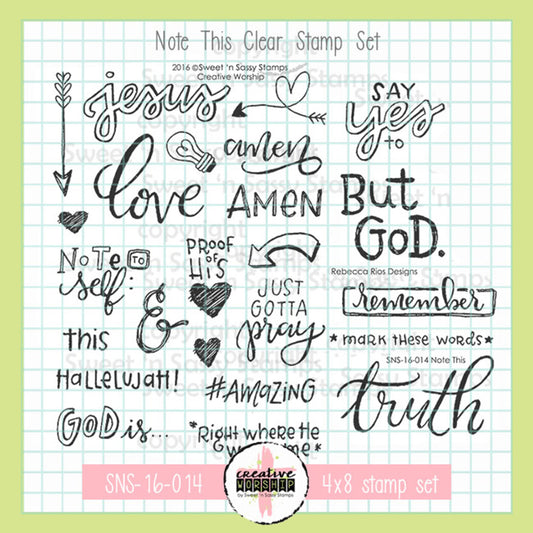 Note This Clear Stamp Set
2016 ©Sweet 'n Sassy Stamps
Creative Worship
jesus
SAY
yes
to
amen
love
AMEN
BUT
GOD.
NOTE TO
self:
PROOF
OF
HIS
Rebecca Rios Designs
JUST
GOTTA
pray
remember
this
&
*MARK THESE WORDS*
SNS-16-014 Note This
Hallelujah!
#AMAZING
truth
GOD is...
*Right where He
me*
SNS-16-014
creative
WORSHIP
by Sweet 'n Sassy Stamps
4x8 stamp set
copyright
Sweet 'n Sassy Stamps